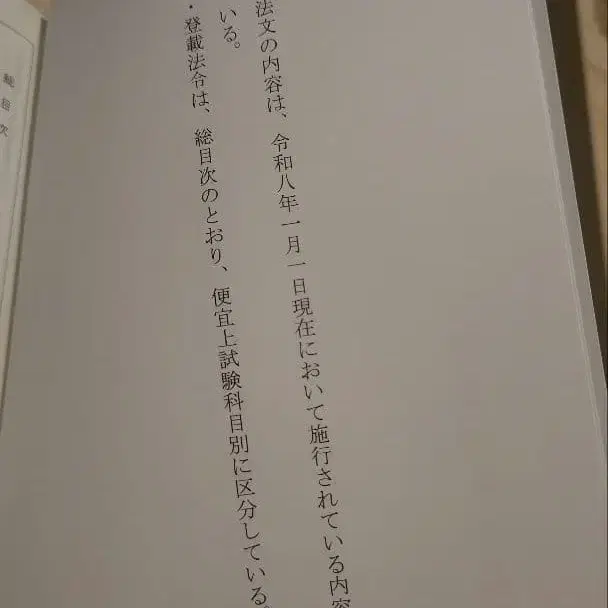 法文の内容は、令和八年一月一日現在において施行されている内容
いる。
・登載法令は、総目次のとおり、便宜上試験科目別に区分している
総目次